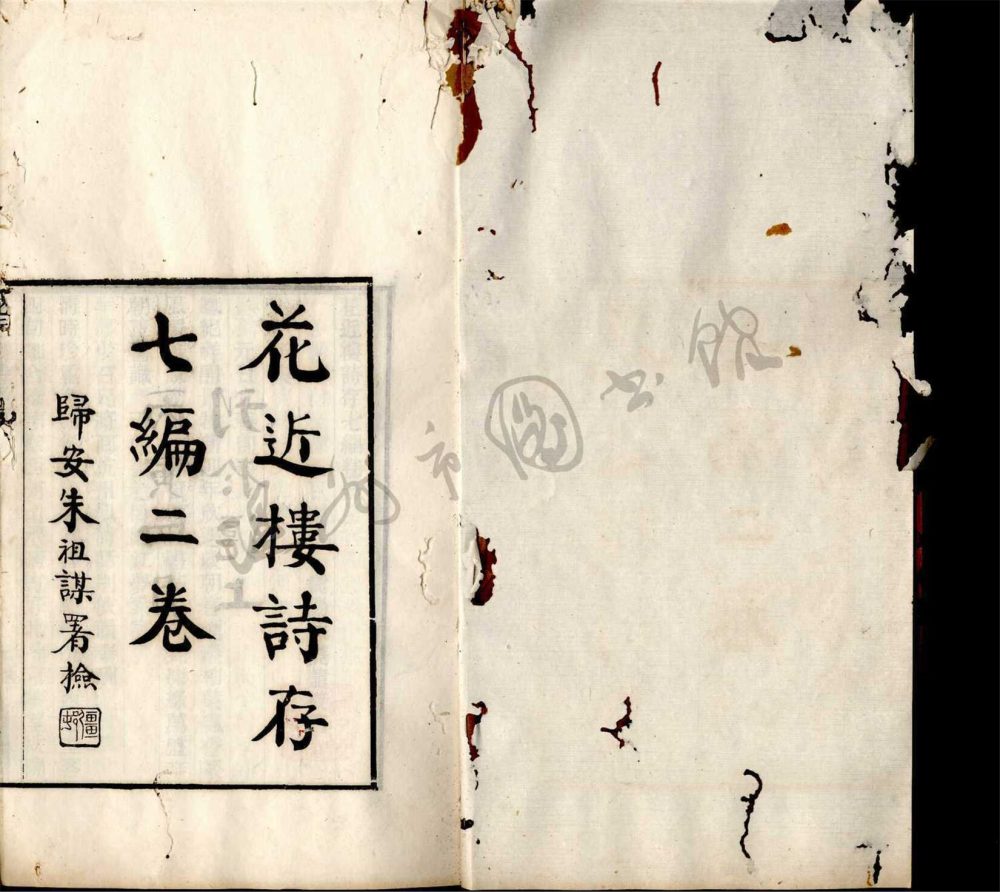 花近樓詩存
七編二卷
歸安朱祖謀署檢
圖書館